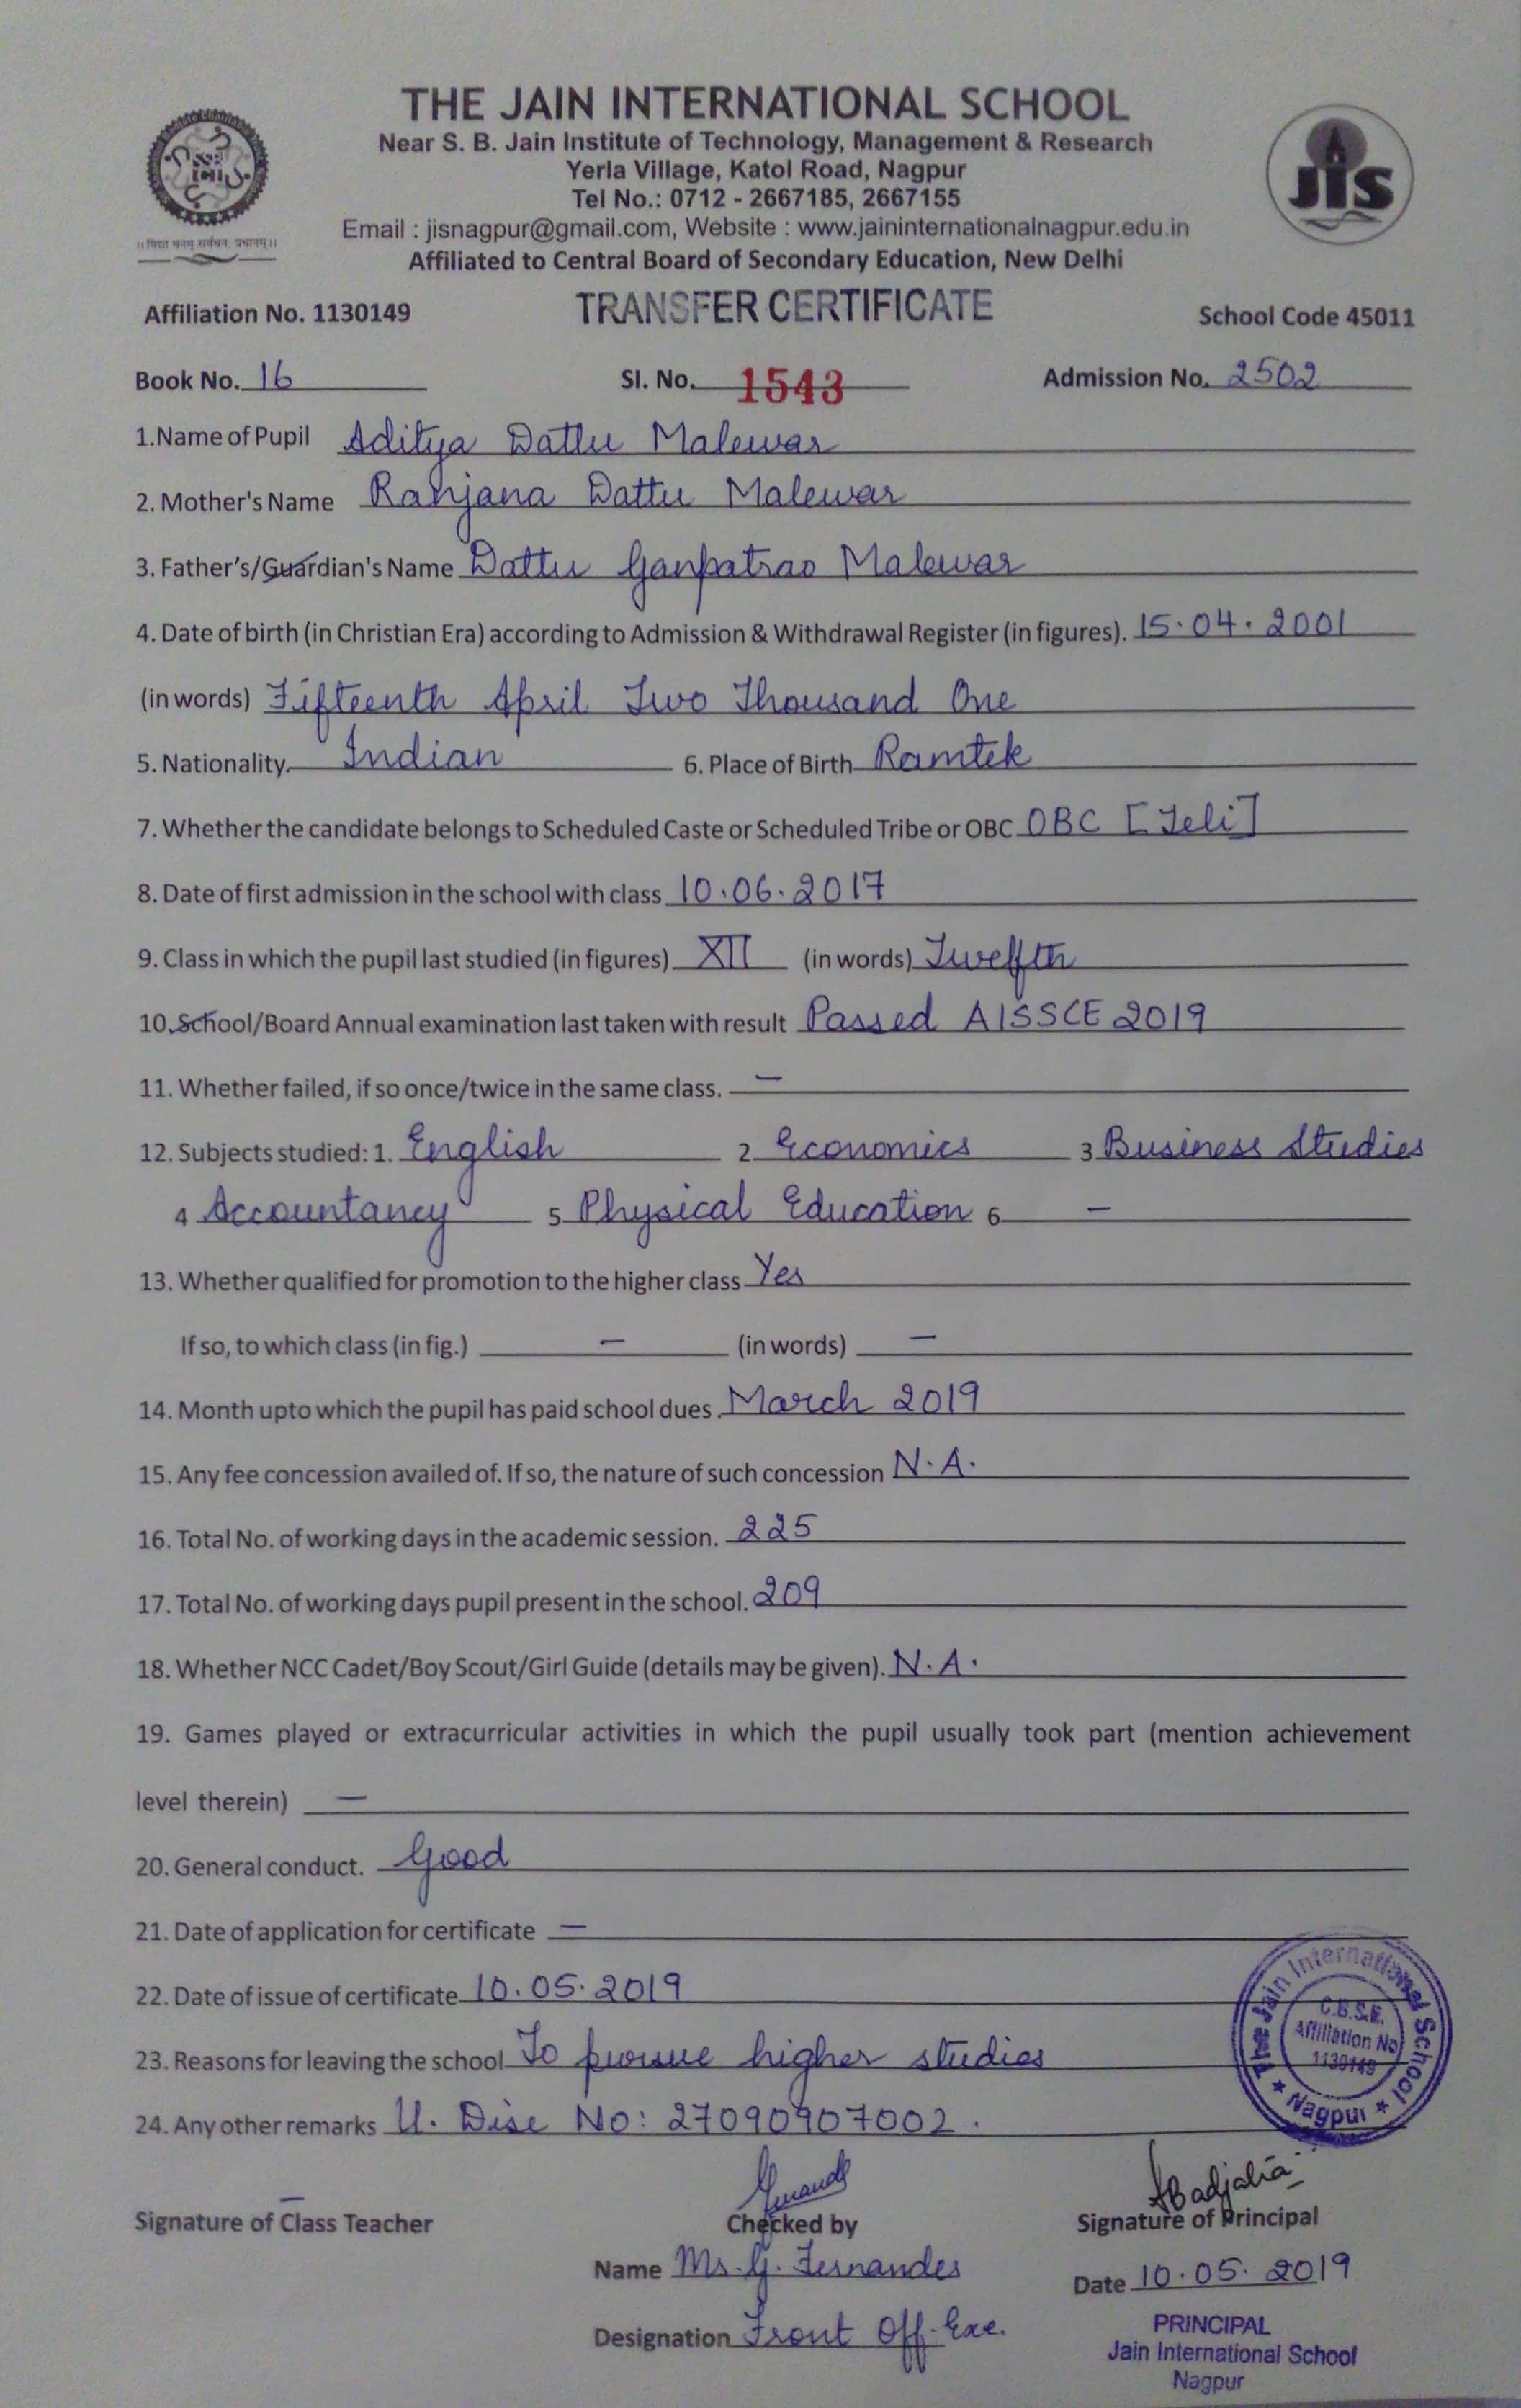 THE JAIN INTERNATIONAL SCHOOL
Near S. B. Jain Institute of Technology, Management & Research
Yerla Village, Katol Road, Nagpur
Tel No.: 0712 - 2667185, 2667155
Email : jisnagpur@gmail.com, Website : www.jaininternationalnagpur.edu.in
Affiliated to Central Board of Secondary Education, New Delhi
JIS
Affiliation No. 1130149 TRANSFER CERTIFICATE School Code 45011
Book No. 16 Sl. No. 1543 Admission No. 2502
1.Name of Pupil Aditya Dattu Malewar
2. Mother's Name Ranjana Dattu Malewar
3. Father's/Guardian's Name Dattu Ganpatrao Malewar
4. Date of birth (in Christian Era) according to Admission & Withdrawal Register (in figures). 15.04.2001
(in words) Fifteenth April Two Thousand One
5. Nationality. Indian 6. Place of Birth Ramtek
7. Whether the candidate belongs to Scheduled Caste or Scheduled Tribe or OBC OBC [Teli]
8. Date of first admission in the school with class 10.06.2017
9. Class in which the pupil last studied (in figures) XII (in words) Twelfth
10. School/Board Annual examination last taken with result Passed AISSCE 2019
11. Whether failed, if so once/twice in the same class. –
12. Subjects studied: 1. English 2 Economics 3 Business Studies
4 Accountancy 5 Physical Education 6 –
13. Whether qualified for promotion to the higher class Yes
If so, to which class (in fig.) – (in words) –
14. Month upto which the pupil has paid school dues. March 2019
15. Any fee concession availed of. If so, the nature of such concession N.A.
16. Total No. of working days in the academic session. 225
17. Total No. of working days pupil present in the school. 209
18. Whether NCC Cadet/Boy Scout/Girl Guide (details may be given). N.A.
19. Games played or extracurricular activities in which the pupil usually took part (mention achievement
level therein) –
20. General conduct. Good
21. Date of application for certificate –
22. Date of issue of certificate 10.05.2019
23. Reasons for leaving the school To pursue higher studies
24. Any other remarks U. Dise No: 27090907002.
The Jain International School
C.B.S.E.
Affiliation No
1130149
★ Nagpur ★
Signature of Class Teacher – Checked by Signature of Principal
Name Ms. G. Fernandes Date 10.05.2019
Designation Front Off. Exe.
PRINCIPAL
Jain International School
Nagpur